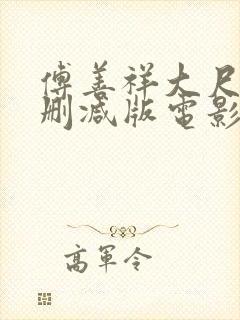 傅善祥大尺
删减版電影
高軍令